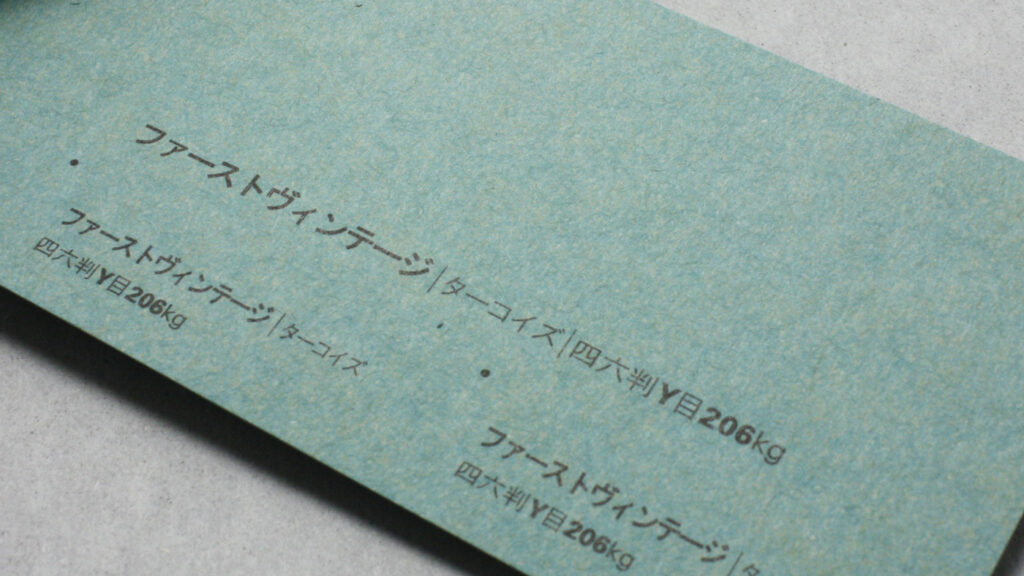 ファーストヴィンテージ|ターコイズ|四六判Y目206kg
ファーストヴィンテージ|ターコイズ
四六判Y目206kg
ファーストヴィンテージ|タ
四六判Y目206kg